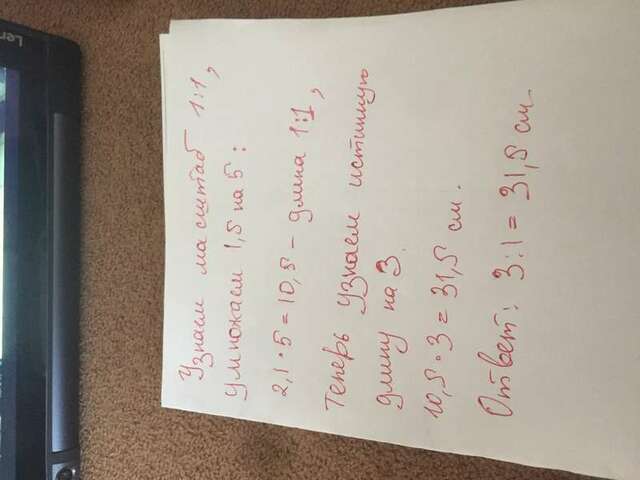 Узнаем масштаб 1:1,
умножаем 1,5 на 5:
2,1·5=10,5 - длина 1:1,
Теперь узнаем истинную
длину на 3.
10,5·3=31,5 см.
Ответ: 3:1=31,5 см.
Len